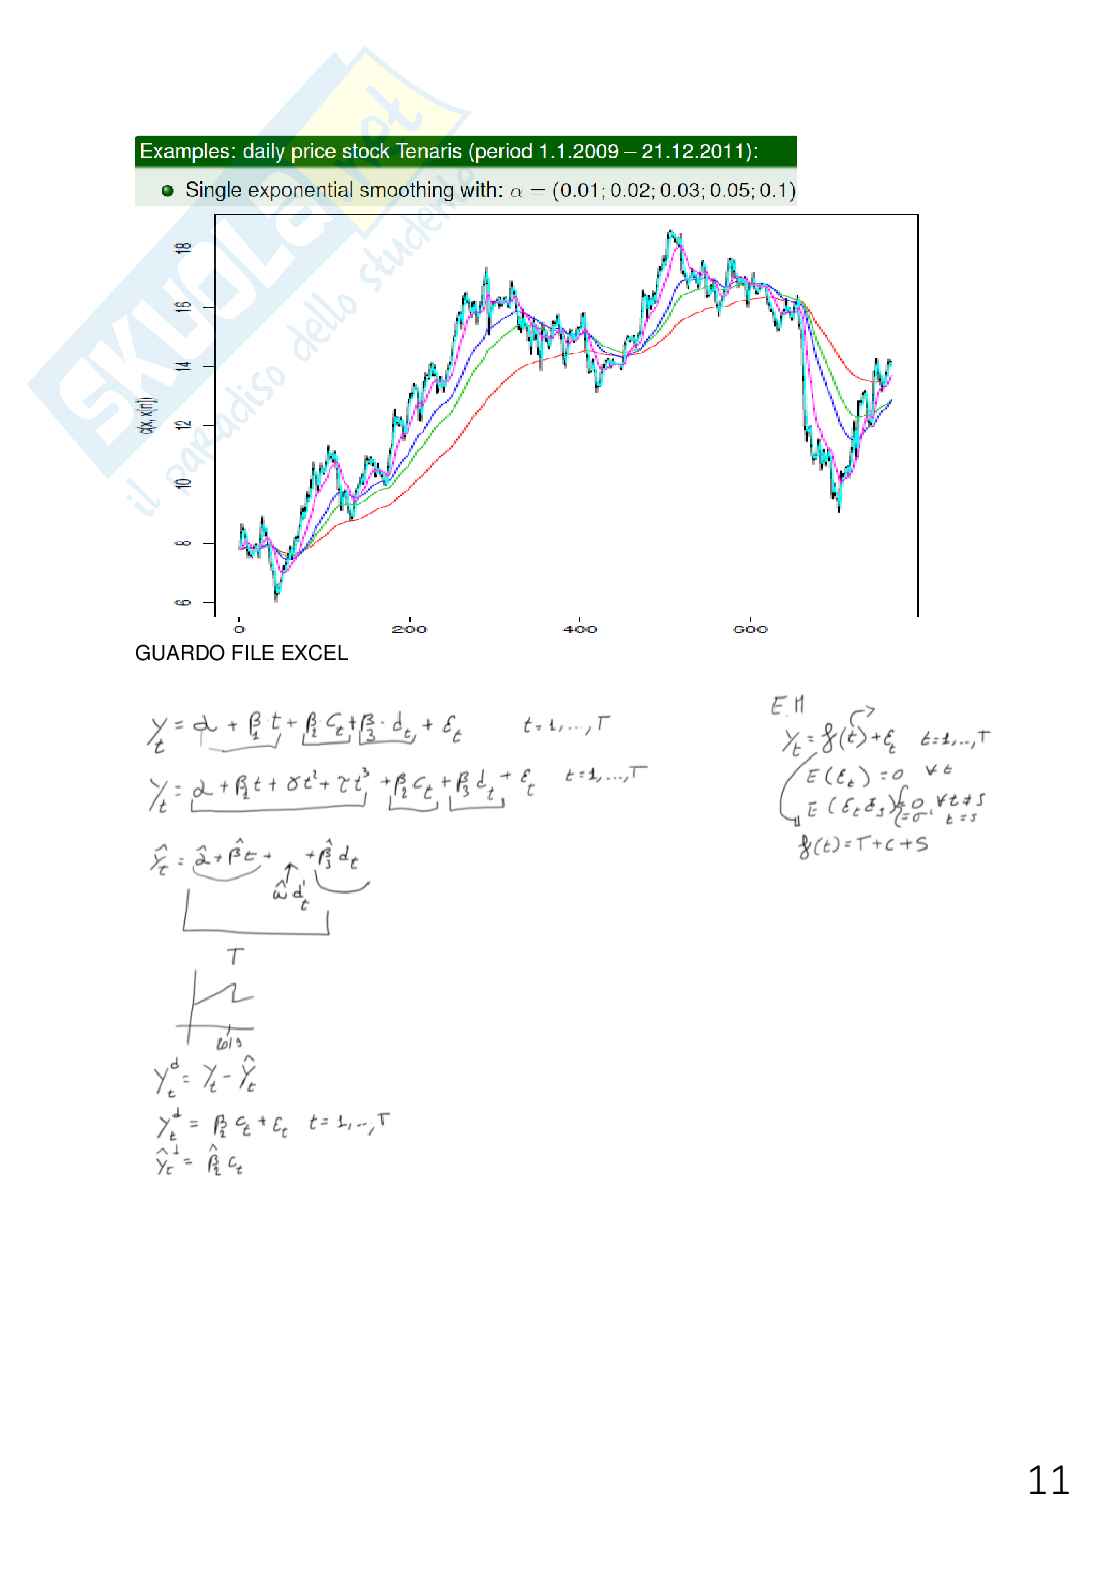 SKUOLA.not
il paradiso dello studente
Examples: daily price stock Tenaris (period 1.1.2009 – 21.12.2011):
Single exponential smoothing with: α = (0.01; 0.02; 0.03; 0.05; 0.1)
c(x, x[n])
18
16
14
12
10
8
6
0 200 400 600
GUARDO FILE EXCEL
Y_t = α + β_1 · t + β_2 · C_t + β_3 · d_t + ε_t t = 1, ..., T
Y_t = α + β_1 t + γt² + τt³ + β_2 C_t + β_3 d_t + ε_t t = 1, ..., T
Ŷ_t = α̂ + β̂t + + β̂_3 d_t
ω̂ d'_t
T
2019
Y_t^d = Y_t - Ŷ_t
Y_t^d = β_2 C_t + ε_t t = 1, .., T
Ŷ_t^d = β̂_2 C_t
E.M
Y_t = f(t) + ε_t t = 1, .., T
E(ε_t) = 0 ∀ t
E(ε_t ε_s) = 0, ∀ t ≠ s
= σ, t = s
f(t) = T + C + S
11